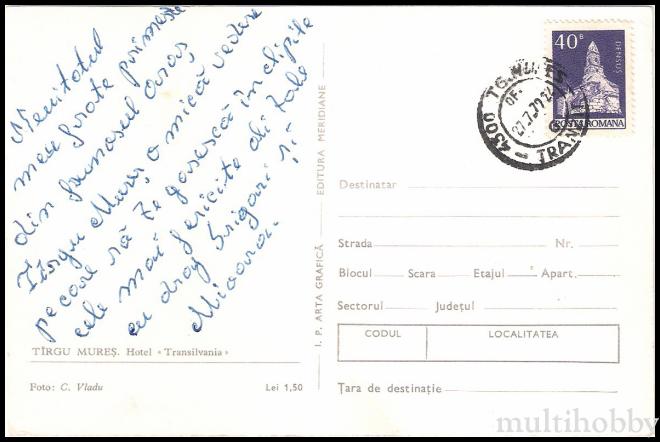 Neuitatul
meu frate primește
din frumosul oraș
Tîrgu Mureș o mică vedere
pe care să te găsească în clipite
cele mai fericite di tale
cu drag Grigori și
Mioara.
TÎRGU MUREȘ. Hotel «Transilvania»
Foto: C. Vladu
Lei 1,50
I. P. ARTA GRAFICĂ — EDITURA MERIDIANE
40 B
DENSUS
POSTA ROMANA
4300 TG. MURES
TRANSIL
Destinatar
Strada Nr.
Blocul Scara Etajul Apart.
Sectorul Județul
CODUL LOCALITATEA
Țara de destinație
multihobby